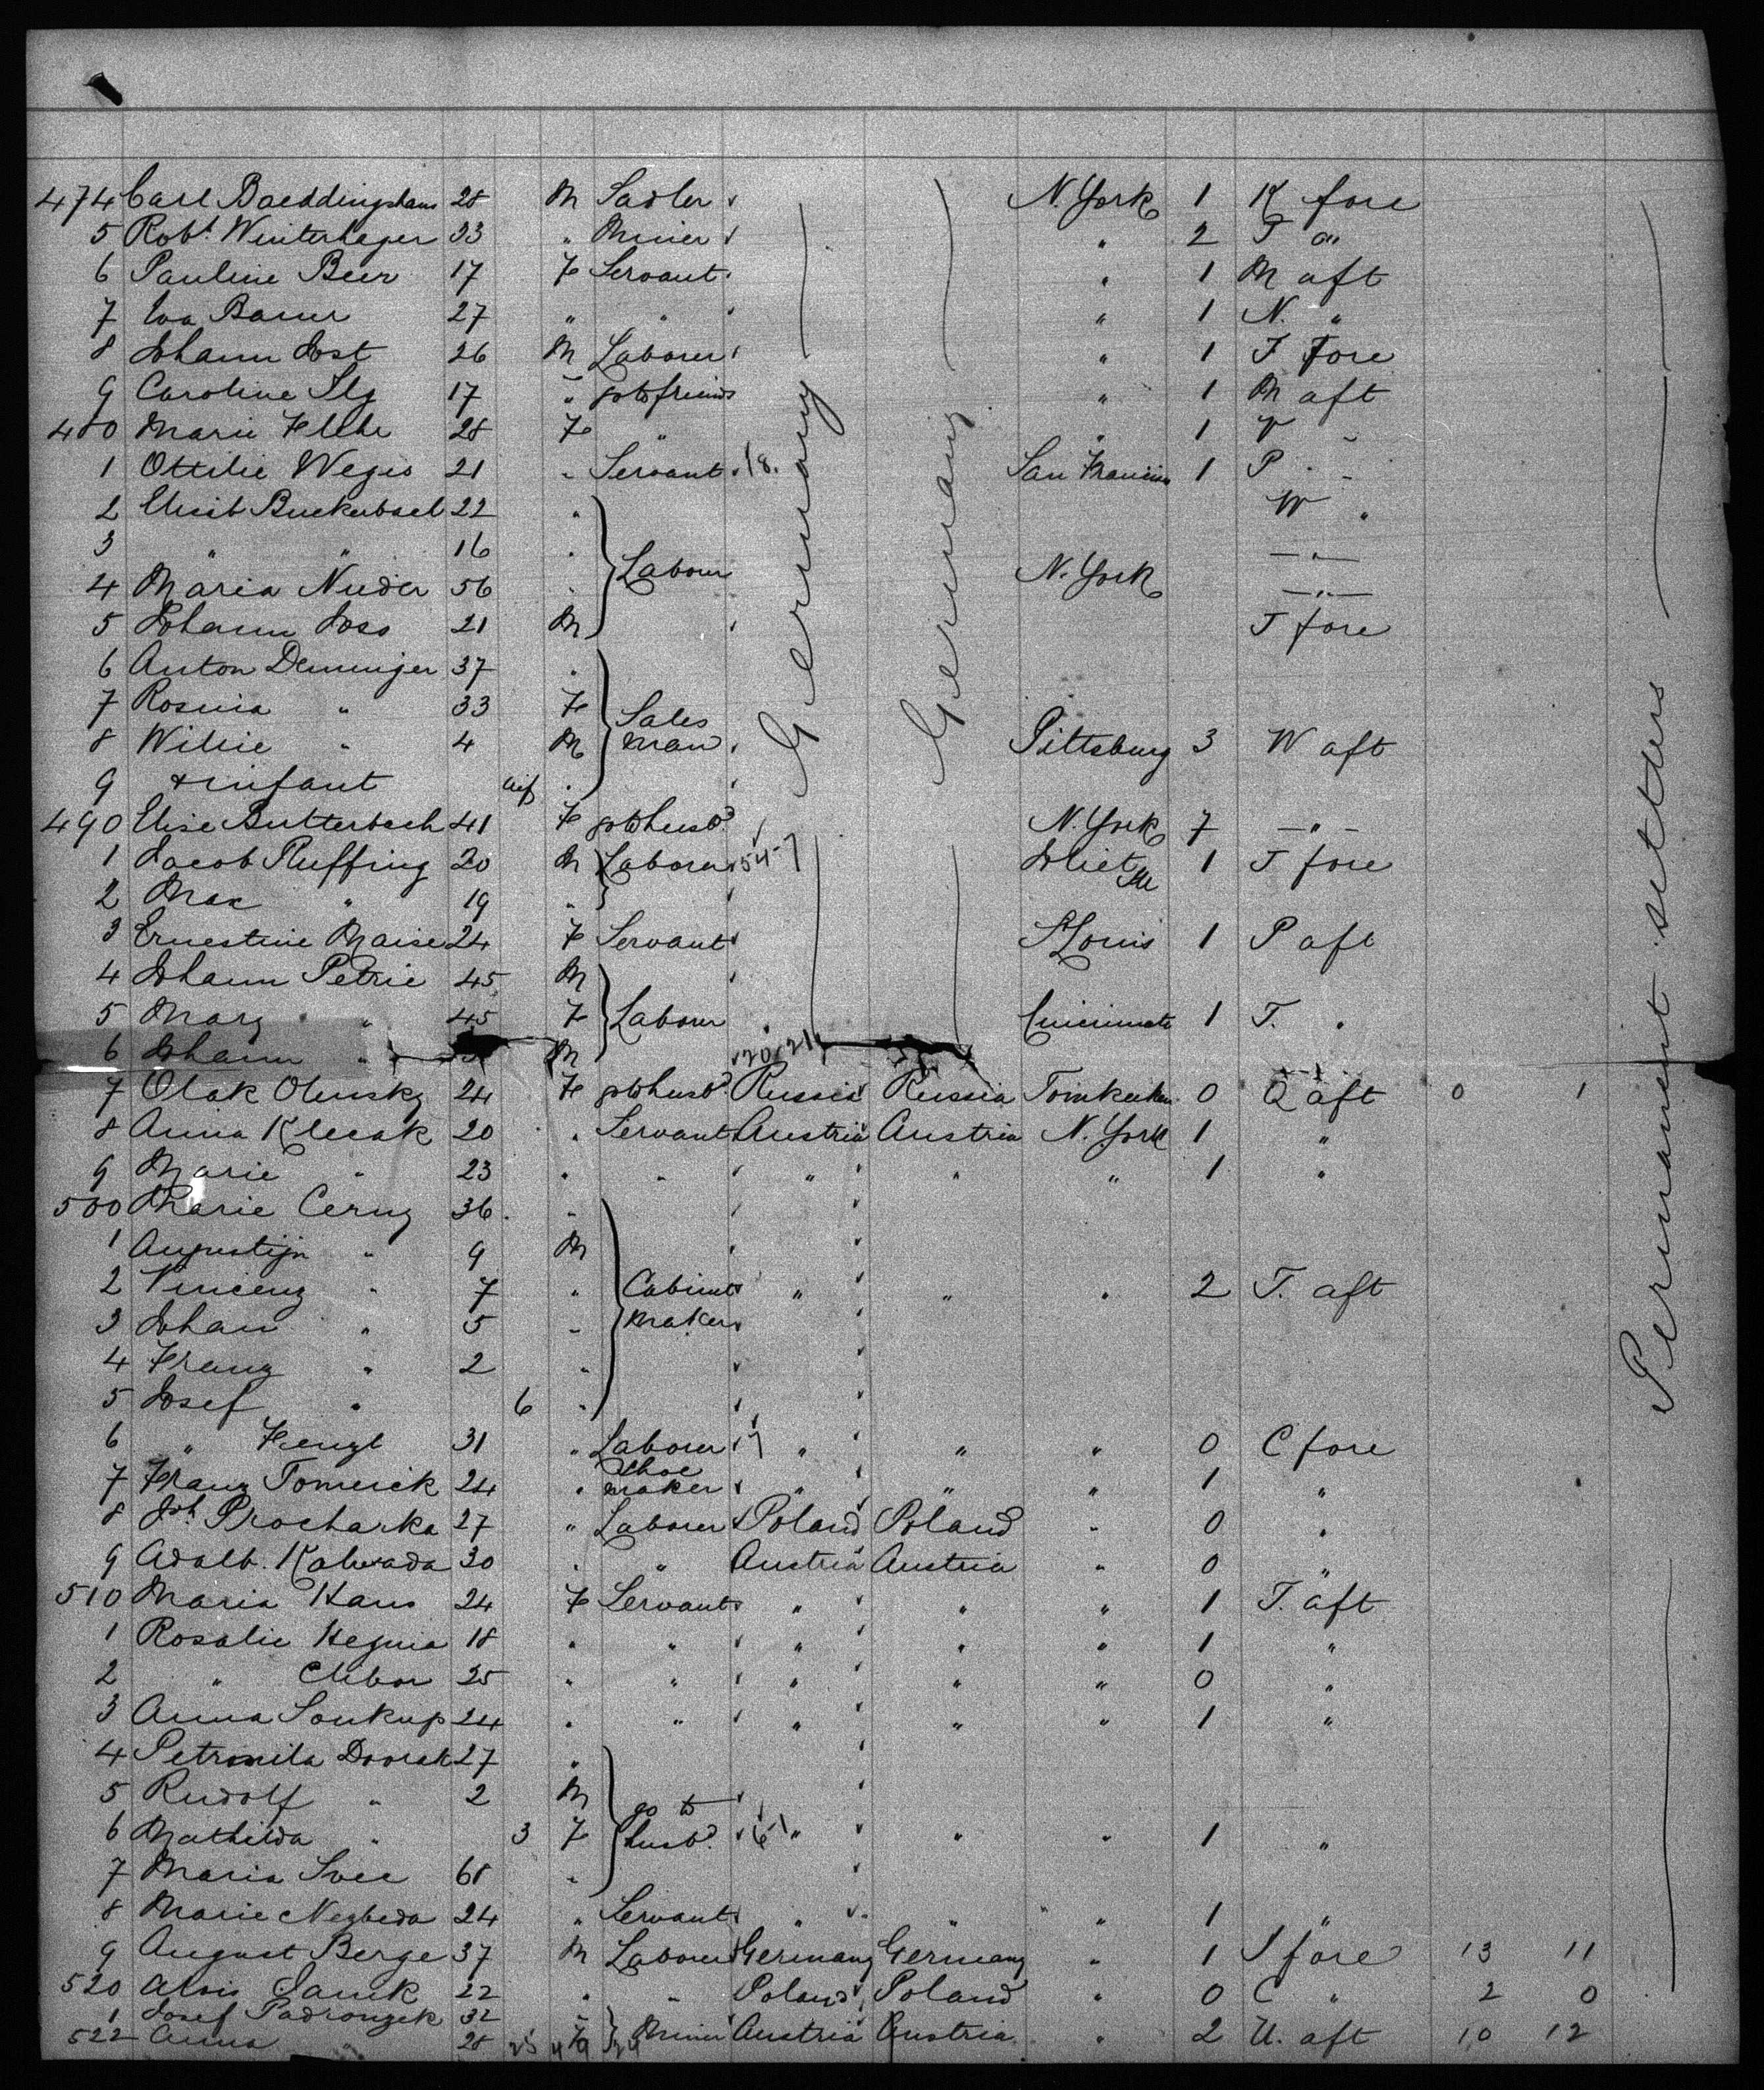 474 Carl Boeddinghaus 28 M Sadler N. York 1 K fore
5 Robt. Winterhager 23 " Miner " 2 T "
6 Pauline Beer 17 F Servant " 1 M aft
7 Eva Bauer 27 " " " 1 N. "
8 Johann Jost 26 M Laborer " 1 J fore
9 Caroline Ilg 17 " gotofriends " 1 M aft
480 Marie 28 F " " 1 "
1 Ottilie Weges 21 " Servant 18. San Francisco 1 P "
2 Elisab 22 " W "
3 " " 16 " — " —
4 Maria Nieder 56 " Laborer N. York — " —
5 Johann Joss 21 M J fore
6 Anton Denninger 37 "
7 Rosina " 33 F
8 Willie " 4 M Sales man Pittsburg 3 W aft
9 & infant inf "
490 Elise Butterbach 41 F gotohusbd N. York 7 — " —
1 Jacob Ruffing 20 M Laborer 54-7 Joliet Ill 1 J fore
2 Max " 19 "
3 Ernestine Maise 24 F Servant St Louis 1 P aft
4 Johann Petrie 45 M
5 Marg " 45 F Laborer Cincinnati 1 T. "
6 Johann " M 20/21
Germany
Germany
7 Olensky 24 F gotohusbd Russia Russia 0 Q aft 0 1
8 Anna Klecak 20 " Servant Austria Austria N. York 1 "
9 Marie " 23 " " " " " 1 "
500 Marie Cerny 36 "
1 Augustijn " 9 M
2 Vincenz " 7 " Cabinet maker " " " 2 T. aft
3 Johan " 5 "
4 Franz " 2 "
5 Josef " 6 "
6 " Fengl 31 " Laborer 17 " " " 0 C fore
7 Franz Tomeick 24 " Shoe maker " " " 1 "
8 Jos. Procharka 27 " Laborer Poland Poland " 0 "
9 Adalb. Kalwada 30 " " Austria Austria " 0 "
510 Maria Hans 24 F Servant " " " 1 T. aft
1 Rosalie 18 " " " " " 1 "
2 " Chibor 25 " " " " " 0 "
3 Anna Soukup 24 " " " " " 1 "
4 Petronila Dvorak 27 "
5 Rudolf " 2 M
6 Mathilda " 3 F go to husbd. 6-1 " " " 1 "
7 Maria Svec 68 "
8 Marie Nezbeda 24 " Servant " " " 1 "
9 August Berge 37 M Laborer Germany Germany " 1 J fore 13 11
520 Alois Janik 22 " " Poland Poland " 0 C " 2 0
1 Josef Padrouzek 32 "
522 Anna " 28 F Miner Austria Austria " 2 U. aft 10 12
Permanent settlers